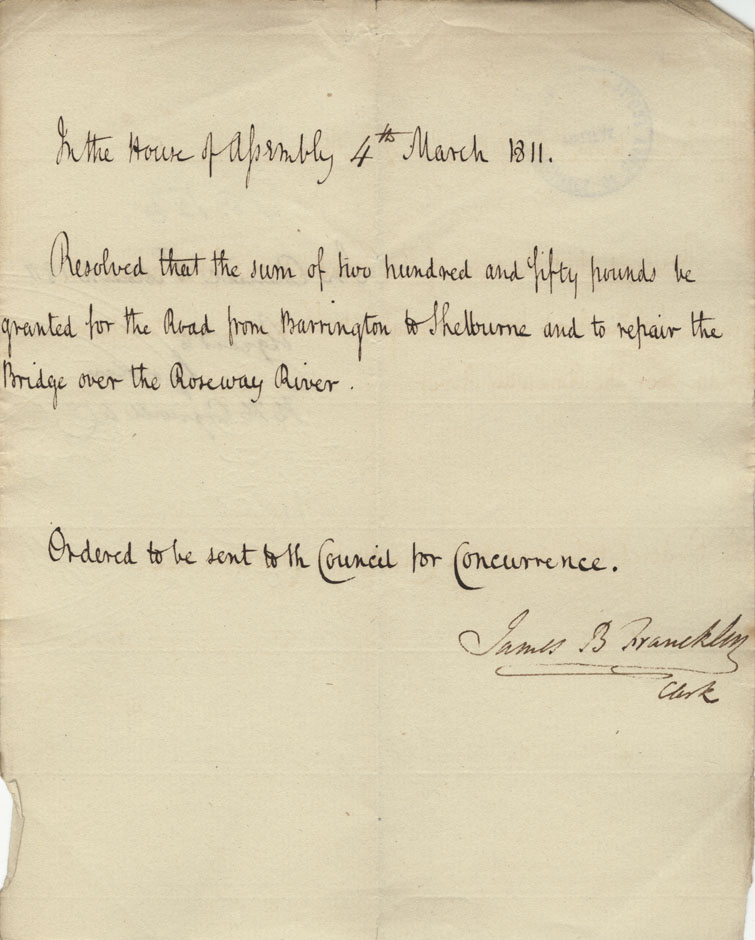 In the House of Assembly 4th March 1811.
Resolved that the sum of two hundred and fifty pounds be
granted for the Road from Barrington to Shelburne and to repair the
Bridge over the Roseway River.
Ordered to be sent to th Council for Concurrence.
James B Francklin
Clerk